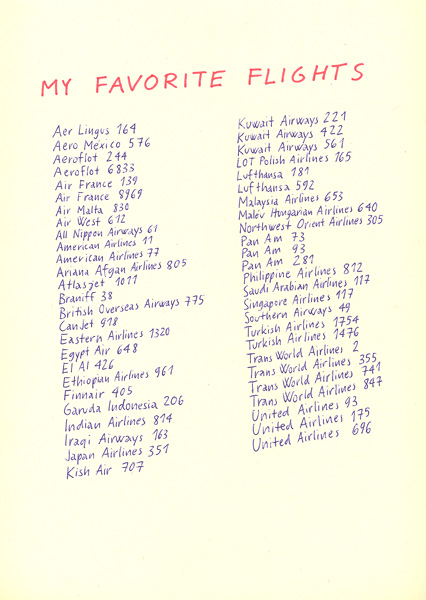 MY FAVORITE FLIGHTS
Aer Lingus 164
Aero Mexico 576
Aeroflot 244
Aeroflot 6833
Air France 139
Air France 8969
Air Malta 830
Air West 612
All Nippon Airways 61
American Airlines 11
American Airlines 77
Ariana Afgan Airlines 805
Atlasjet 1011
Braniff 38
British Overseas Airways 775
CanJet 918
Eastern Airlines 1320
Egypt Air 648
El Al 426
Ethiopian Airlines 961
Finnair 405
Garuda Indonesia 206
Indian Airlines 814
Iraqi Airways 163
Japan Airlines 351
Kish Air 707
Kuwait Airways 221
Kuwait Airways 422
Kuwait Airways 561
LOT Polish Airlines 165
Lufthansa 181
Lufthansa 592
Malaysia Airlines 653
Malév Hungarian Airlines 640
Northwest Orient Airlines 305
Pan Am 73
Pan Am 93
Pan Am 281
Philippine Airlines 812
Saudi Arabian Airlines 117
Singapore Airlines 117
Southern Airways 49
Turkish Airlines 1754
Turkish Airlines 1476
Trans World Airlines 2
Trans World Airlines 355
Trans World Airlines 741
Trans World Airlines 847
United Airlines 93
United Airlines 175
United Airlines 696